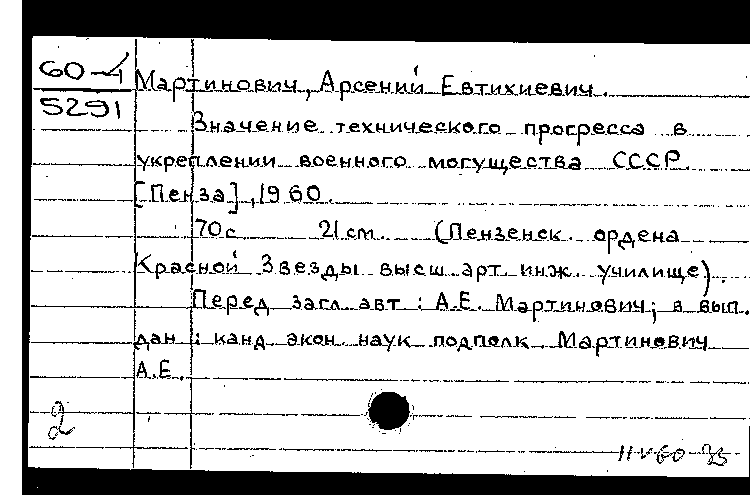 60-4
5291
Мартинович, Арсений Евтихиевич.
Значение технического прогресса в
укреплении военного могущества СССР.
[Пенза], 1960.
70 с 21 см. (Пензенск. ордена
Красной Звезды высш. арт. инж. училище).
Перед загл. авт : А.Е. Мартинович; в вып.
дан : канд. экон. наук подполк. Мартинович
А.Е.
2